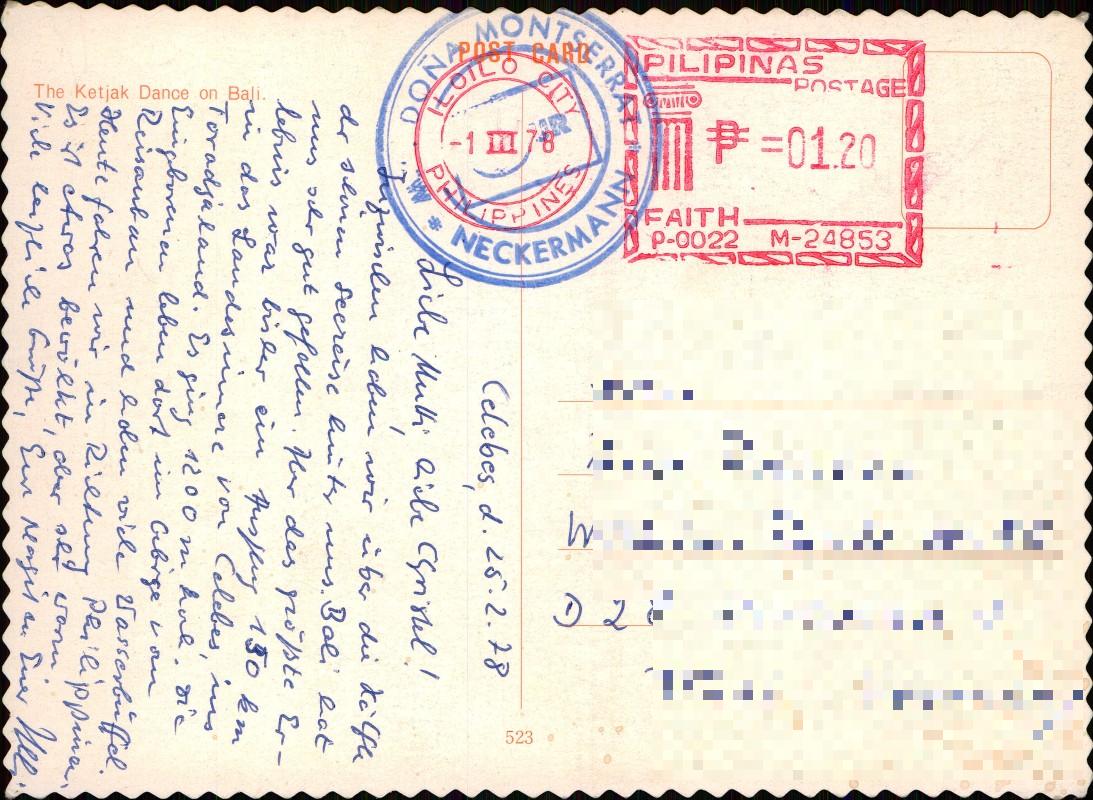 The Ketjak Dance on Bali.
POST CARD
DOÑA MONTSERRAT
* NECKERMANN *
ILOILO CITY
-1 III 78
PHILIPPINES
PILIPINAS
POSTAGE
₱ =01.20
FAITH
P-0022 M-24853
Celebes, d. 25.2.78
Liebe Mutti, liebe Christel!
Inzwischen haben wir über die Hälfte
der schönen Seereise hinter uns. Bali hat
uns sehr gut gefallen. Nur das größte Er-
lebnis war bisher ein Ausflug 150 km
in das Landesinnere von Celebes, ins
Toradjaland. Es ging 1200 m hoch. Die
Eingebornen leben dort im Gebirge vom
Reisanbau und haben viele Wasserbüffel.
Heute fahren wir in Richtung Philippinen.
Es ist etwas bewölkt, aber sehr warm.
Viele herzliche Grüße, Eure Margit u. Euer
W
D 2
523